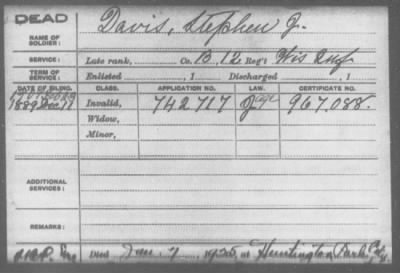 DEAD
NAME OF SOLDIER: Davis, Stephen J.
SERVICE: Late rank, Co. B, 12 Reg't Wis Inf
TERM OF SERVICE: Enlisted , 1 Discharged , 1
DATE OF FILING. CLASS. APPLICATION NO. LAW. CERTIFICATE NO.
1889 Dec 17 Invalid, 742717 967.088.
Widow,
Minor,
ADDITIONAL SERVICES:
REMARKS:
Died Jan. 7 1925, at Huntington Park